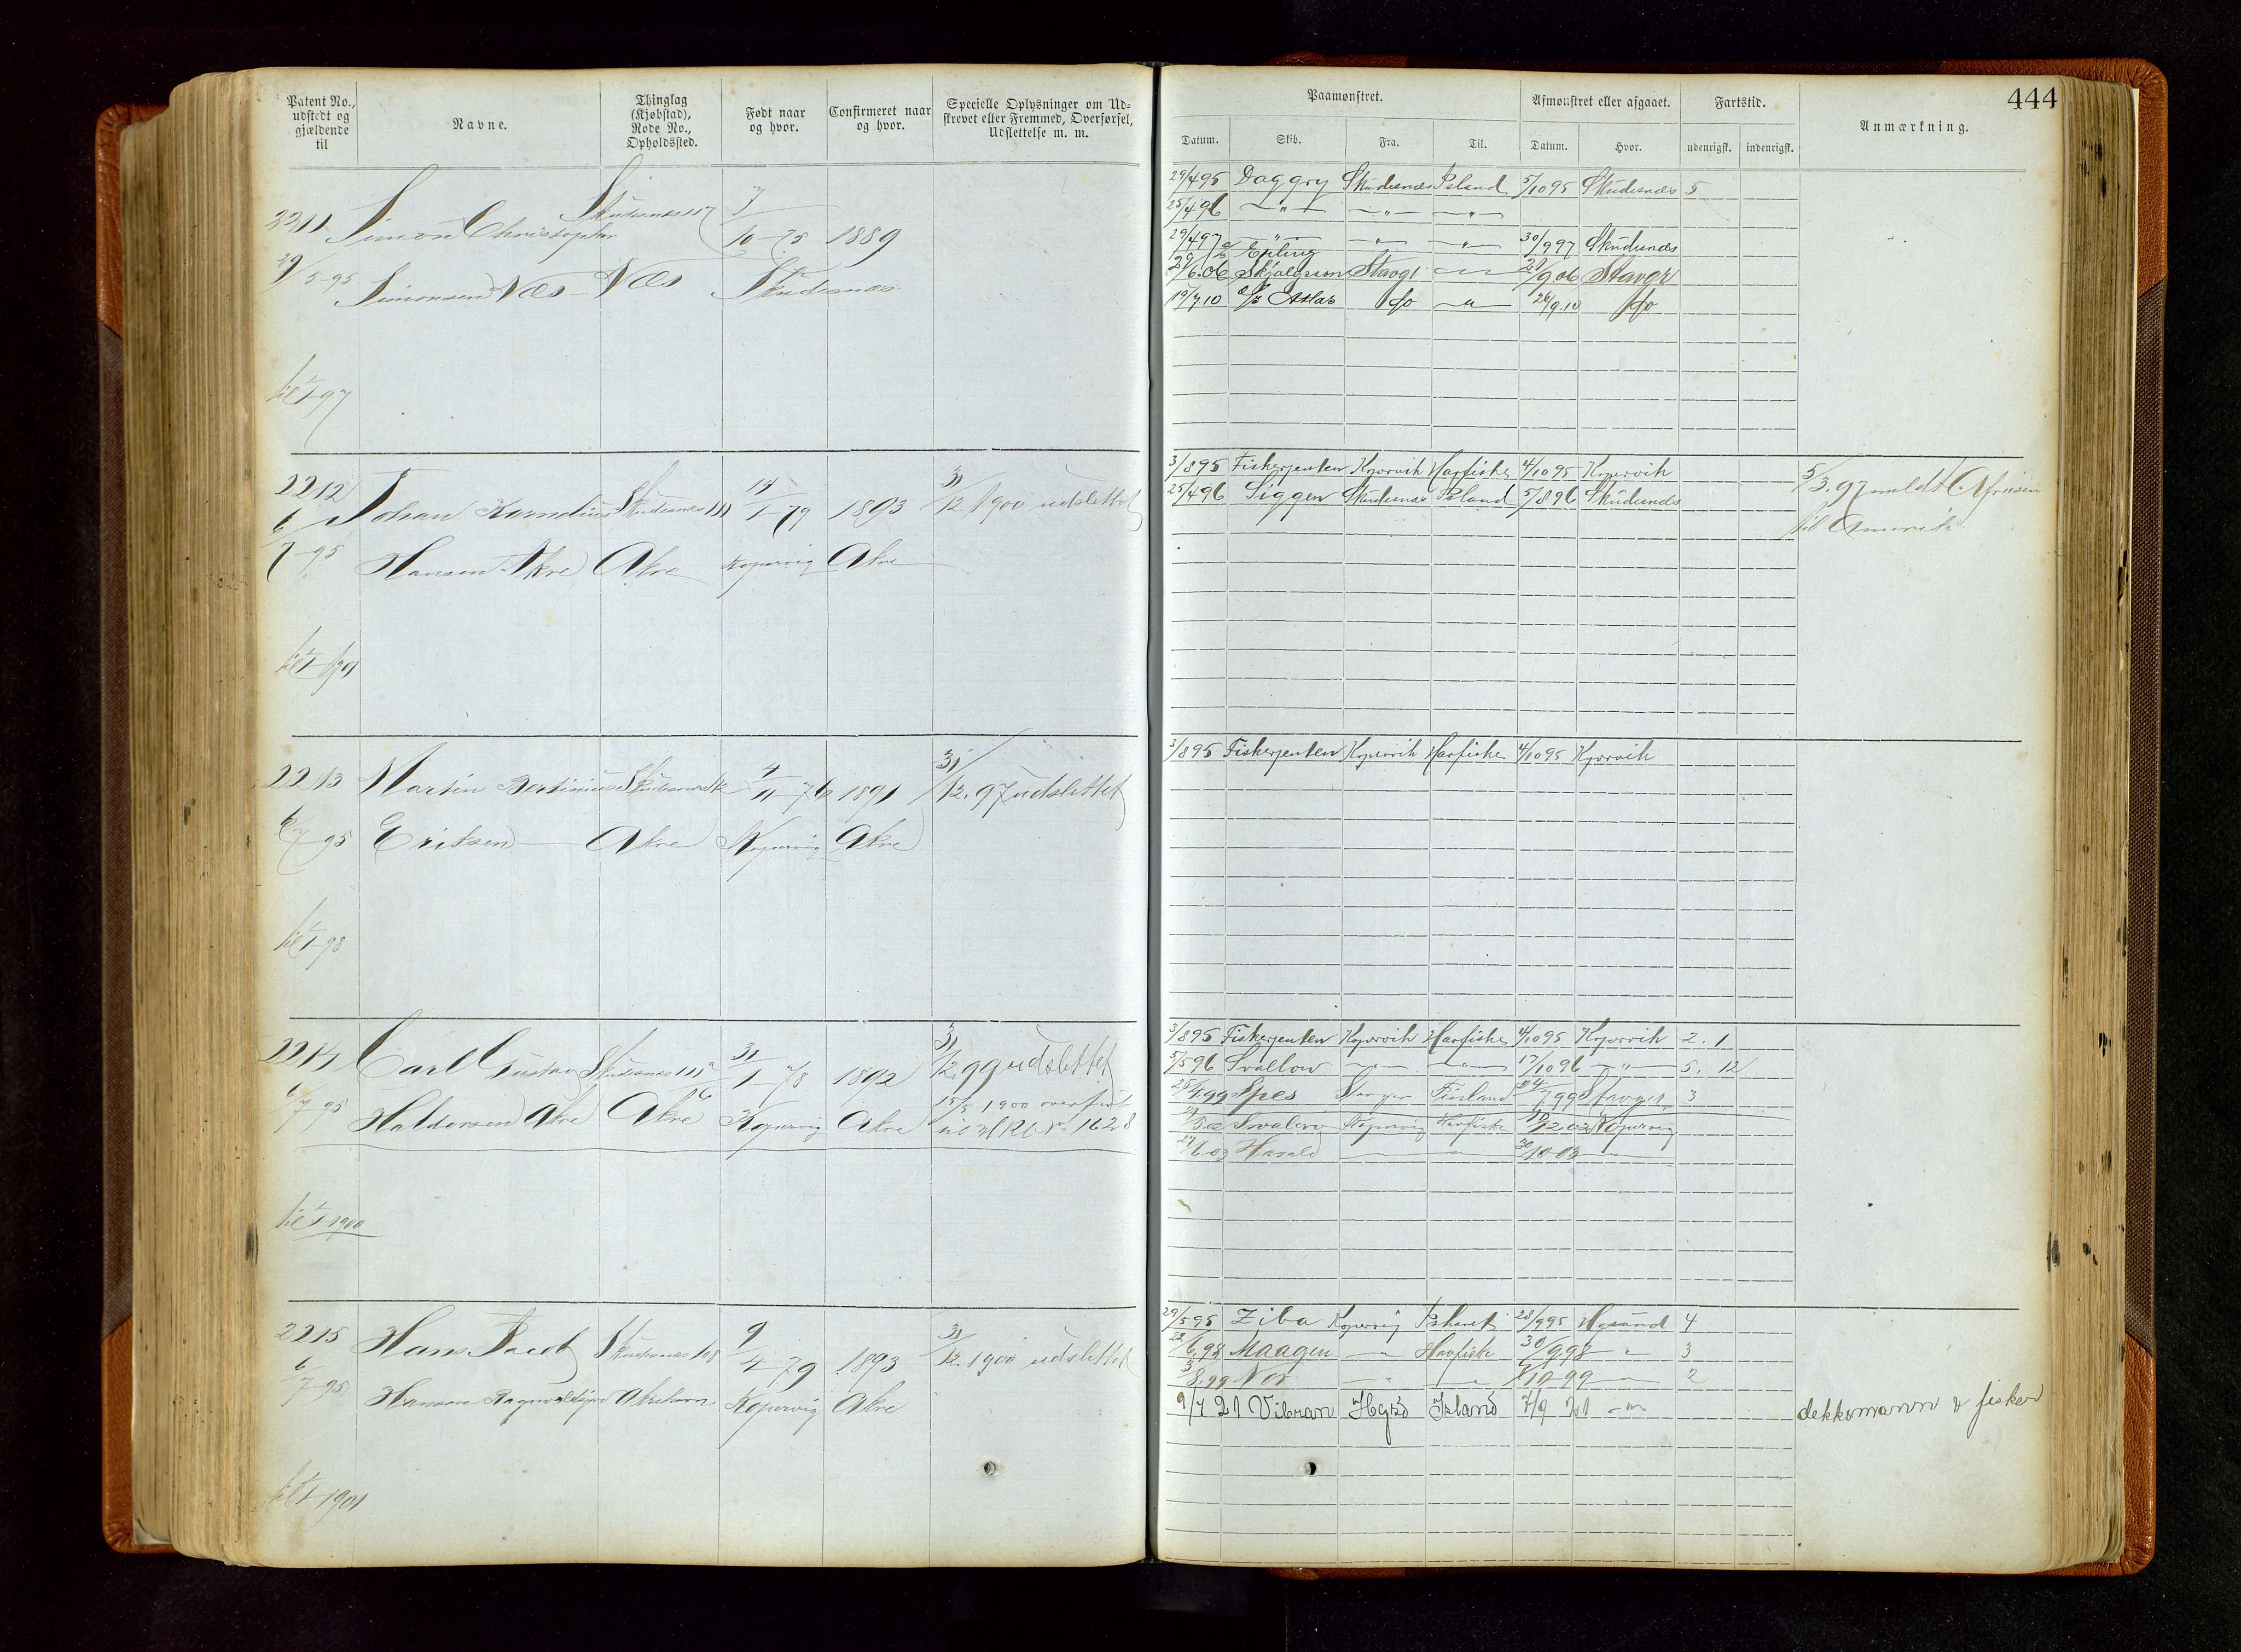 Patent No.,
udstedt og
gjældende
til
Navne.
Thinglag
(Kjøbstad),
Rode No.,
Opholdssted.
Født naar
og hvor.
Confirmeret naar
og hvor.
Specielle Oplysninger om Ud-
skrevet eller Fremmed, Overførsel,
Udslettelse m. m.
2211 Simon Christopher Skudesnæs 117 7/10-75 1889
29/5-95 Simonsen Næs Næs Skudesnæs
til 1/1-97
2212 Johan Kornelius Skudesnæs 111 14/1-79 1893 31/12 1900 udslettet
6/7-95 Hansen Akre Akre Kopervig Akre
2213 Martin Bertinius Skudesnæs 4/11-76 1891 31/12.97 udslettet
6/7-95 Eriksen Akre Kopervig Akre
til 1/1-98
2214 Carl Gustav Skudesnæs 111 31/1-78 1892 31/12.99 udslettet
6/7-95 Haldorsen Akre Akre Kopervig Akre 15/5 1900 overført
til No 1628
til 1/1-1900
2215 Hans Skudesnæs 108 9/4 79 1893 31/12.1900 udslettet
6/7-95 Hansen Akrehavn Kopervig Akre
til 1/1-1901
444
Paamønstret.
Afmønstret eller afgaaet.
Fartstid.
Anmærkning.
Datum. Skib. Fra. Til. Datum. Hvor. udenrigsk. indenrigsk.
29/4 95 Daggry Skudesnæs Island 5/10 95 Skudesnæs 5
25/4 96 -"- -"- -"-
29/4 97 -"- -"- -"- 30/9 97 Skudesnæs
Erling
29/6.06 Skjalgsson Stavgr -"- 28/9 06 Stavgr
19/7.10 Atlas do -"- 26/9.10 do
3/8 95 Fiskerjenten Kopervik Havfiske 4/10 95 Kopervik 5/3.97 meldt Afreisen
25/4 96 Siggen Skudesnæs Island 5/8 96 Skudesnæs til Amerik
3/8 95 Fiskerjenten Kopervik Havfiske 4/10 95 Kopervik
3/8 95 Fiskerjenten Kopervik Havfiske 4/10 95 Kopervik 2. 1
5/5 96 Svallow -"- -"- 17/10 96 -"- 5. 12
25/4 99 Spes Stavger Finland 24/7 99 Stavger 3
Svalen Kopervig Havfiske Kopervig
27/6.03 Harald -"- 30/10 03 -"-
29/5 95 Ziba Kopervig 28/9 95 Hgsund 4
22/6.98 Maagen -"- Havfiske 30/9.98 -"- 3
3/8.99 Nor -"- -"- -"- 2
9/7 21 Vibran Hgsd Island 7/9 21 -"- dekksmann & fisker